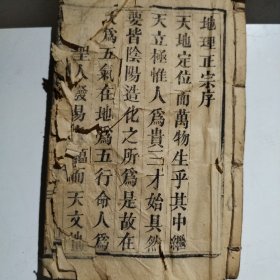 地理正宗序
天地定位而萬物生乎其中繼
天立極惟人為貴三才始具然
要皆陰陽造化之所為是故在
為五氣在地為五行命人為
聖人發易 而天文